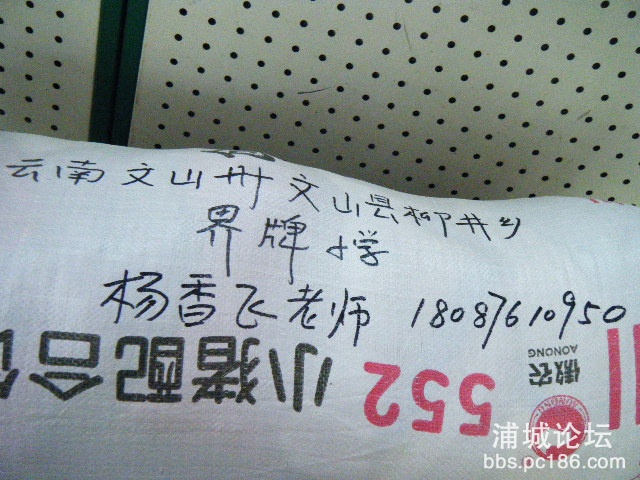 云南文山州文山县柳井乡
界牌小学
杨香飞老师 18087610950
小猪配合
552
傲农
AONONG
浦城论坛
bbs.pc186.com